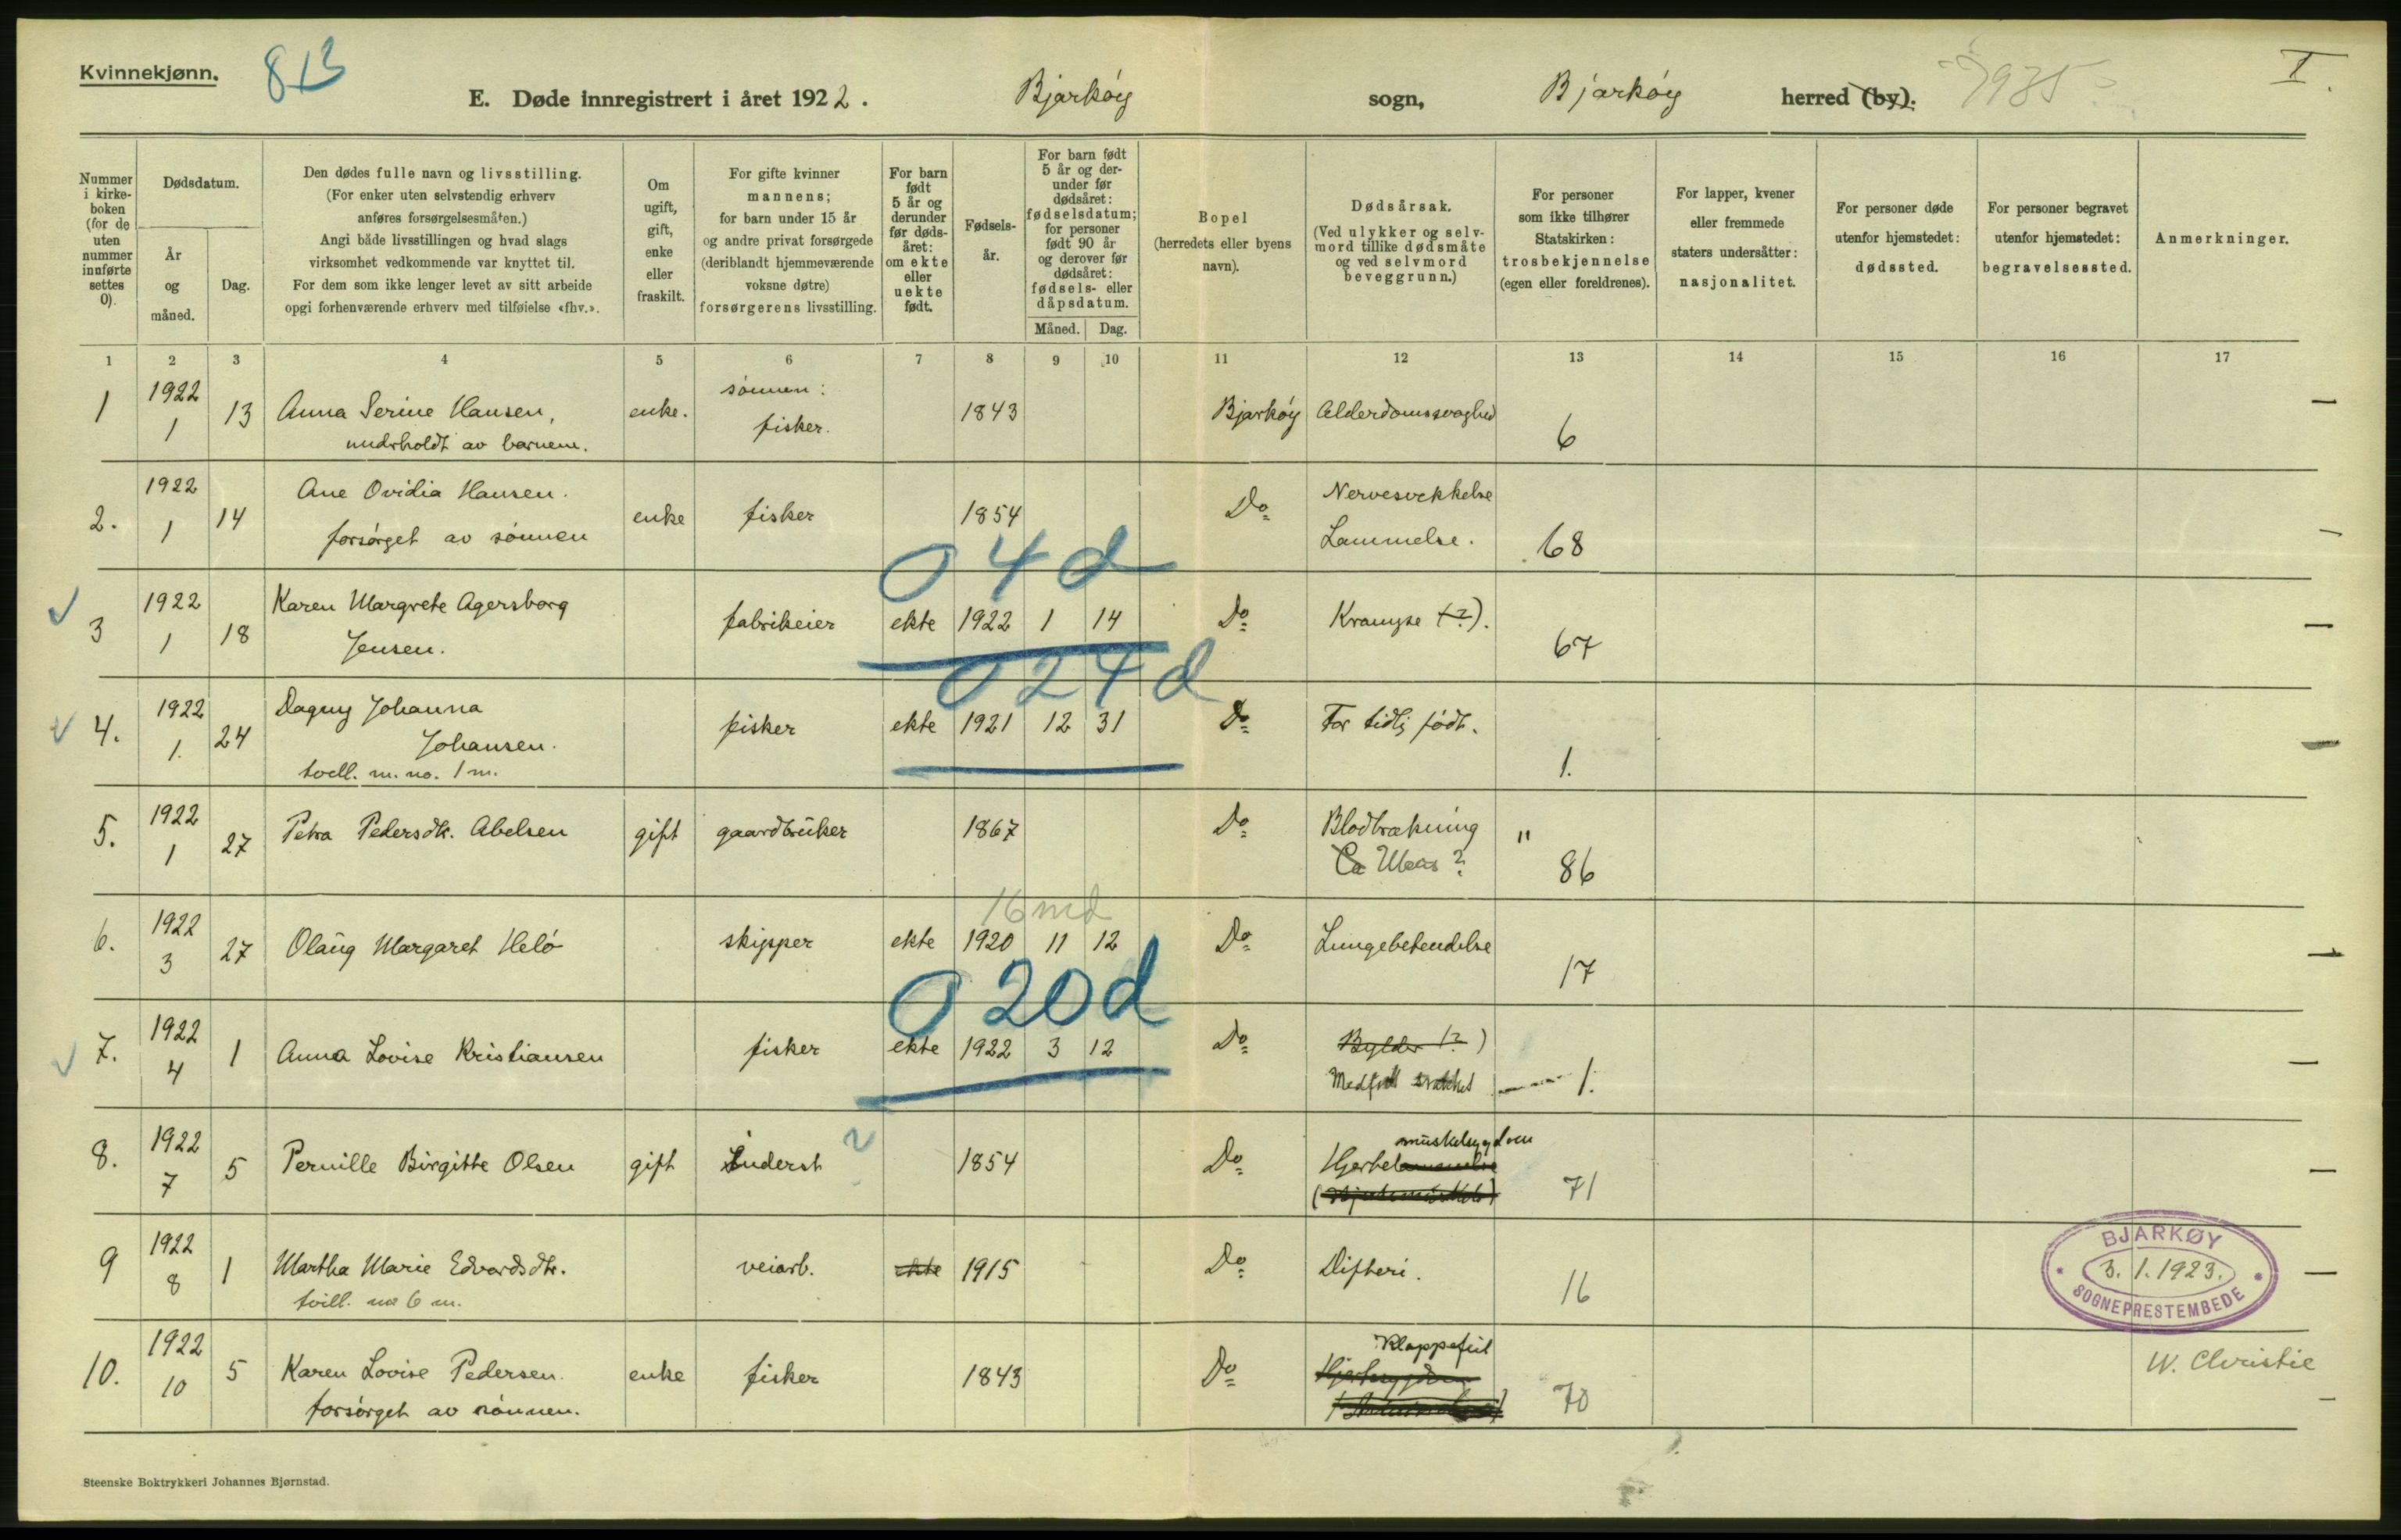 Kvinnekjønn.
813
E. Døde innregistrert i året 1922.
Bjarkóy sogn, Bjarkóy herred (by).
7935
I.
Nummer i kirkeboken (for de uten nummer innførte settes 0).
Dødsdatum.
År og måned.
Dag.
Den dødes fulle navn og livsstilling.
(For enker uten selvstendig erhverv
anføres forsørgelsesmåten.)
Angi både livsstillingen og hvad slags
virksomhet vedkommende var knyttet til.
For dem som ikke lenger levet av sitt arbeide
opgi forhenværende erhverv med tilføielse «fhv.».
Om ugift, gift, enke eller fraskilt.
For gifte kvinner
mannens;
for barn under 15 år
og andre privat forsørgede
(deriblandt hjemmeværende
voksne døtre)
forsørgerens livsstilling.
For barn født 5 år og derunder før dødsåret: om ekte eller uekte født.
Fødselsår.
For barn født 5 år og derunder før dødsåret: fødselsdatum; for personer født 90 år og derover før dødsåret: fødsels- eller dåpsdatum.
Måned. Dag.
Bopel
(herredets eller byens
navn).
Dødsårsak.
(Ved ulykker og selvmord tillike dødsmåte
og ved selvmord
beveggrunn.)
For personer
som ikke tilhører
Statskirken:
trosbekjennelse
(egen eller foreldrenes).
For lapper, kvener
eller fremmede
staters undersåtter:
nasjonalitet.
For personer døde
utenfor hjemstedet:
dødssted.
For personer begravet
utenfor hjemstedet:
begravelsessted.
Anmerkninger.
1 2 3 4 5 6 7 8 9 10 11 12 13 14 15 16 17
1 1922 1 13 Anna Serine Hansen, enke. sønnen: fisker. 1843 Bjarkóy Alderdomssvaghed 6
underholdt av barnene.
2. 1922 1 14 Ane Ovidia Hansen. enke fisker 1854 Do Nervesvekkelse
forsørget av sønnen Lammelse. 68
04d
3 1922 1 18 Karen Margrete Agersborg
Jensen. fabrikeier ekte 1922 1 14 Do Krampe (?). 67
024d
4. 1922 1. 24 Dagny Johanna
Johansen. fisker ekte 1921 12 31 Do For tidlig født. 1.
tvill. m. no. 1 m.
5. 1922 1 27 Petra Pedersdtr. Abelsen gift gaardbruker 1867 Do Blodbrækning "
Ca Ulcus ? 86
16 md
6. 1922 3 27 Olaug Margaret Heló skipper ekte 1920 11 12 Do Lungebetendelse 17
020d
7. 1922 4 1 Anna Lovise Kristiansen fisker ekte 1922 3 12 Do Bylder (?)
Medfødt svakhet 1.
8. 1922 7 5 Pernille Birgitte Olsen gift Inderst 1854 Do Hjerte muskelsygdom 71
9 1922 8 1 Martha Marie Edvardsdtr. veiarb. ekte 1915 Do Difteri. 16
tvill. no 6 m.
10. 1922 10 5 Karen Lovise Pedersen. enke fisker 1843 Do Klappefeil 70
forsørget av sønnen.
BJARKØY
3. 1. 1923.
SOGNEPRESTEMBEDE
W. Christie
Steenske Boktrykkeri Johannes Bjørnstad.